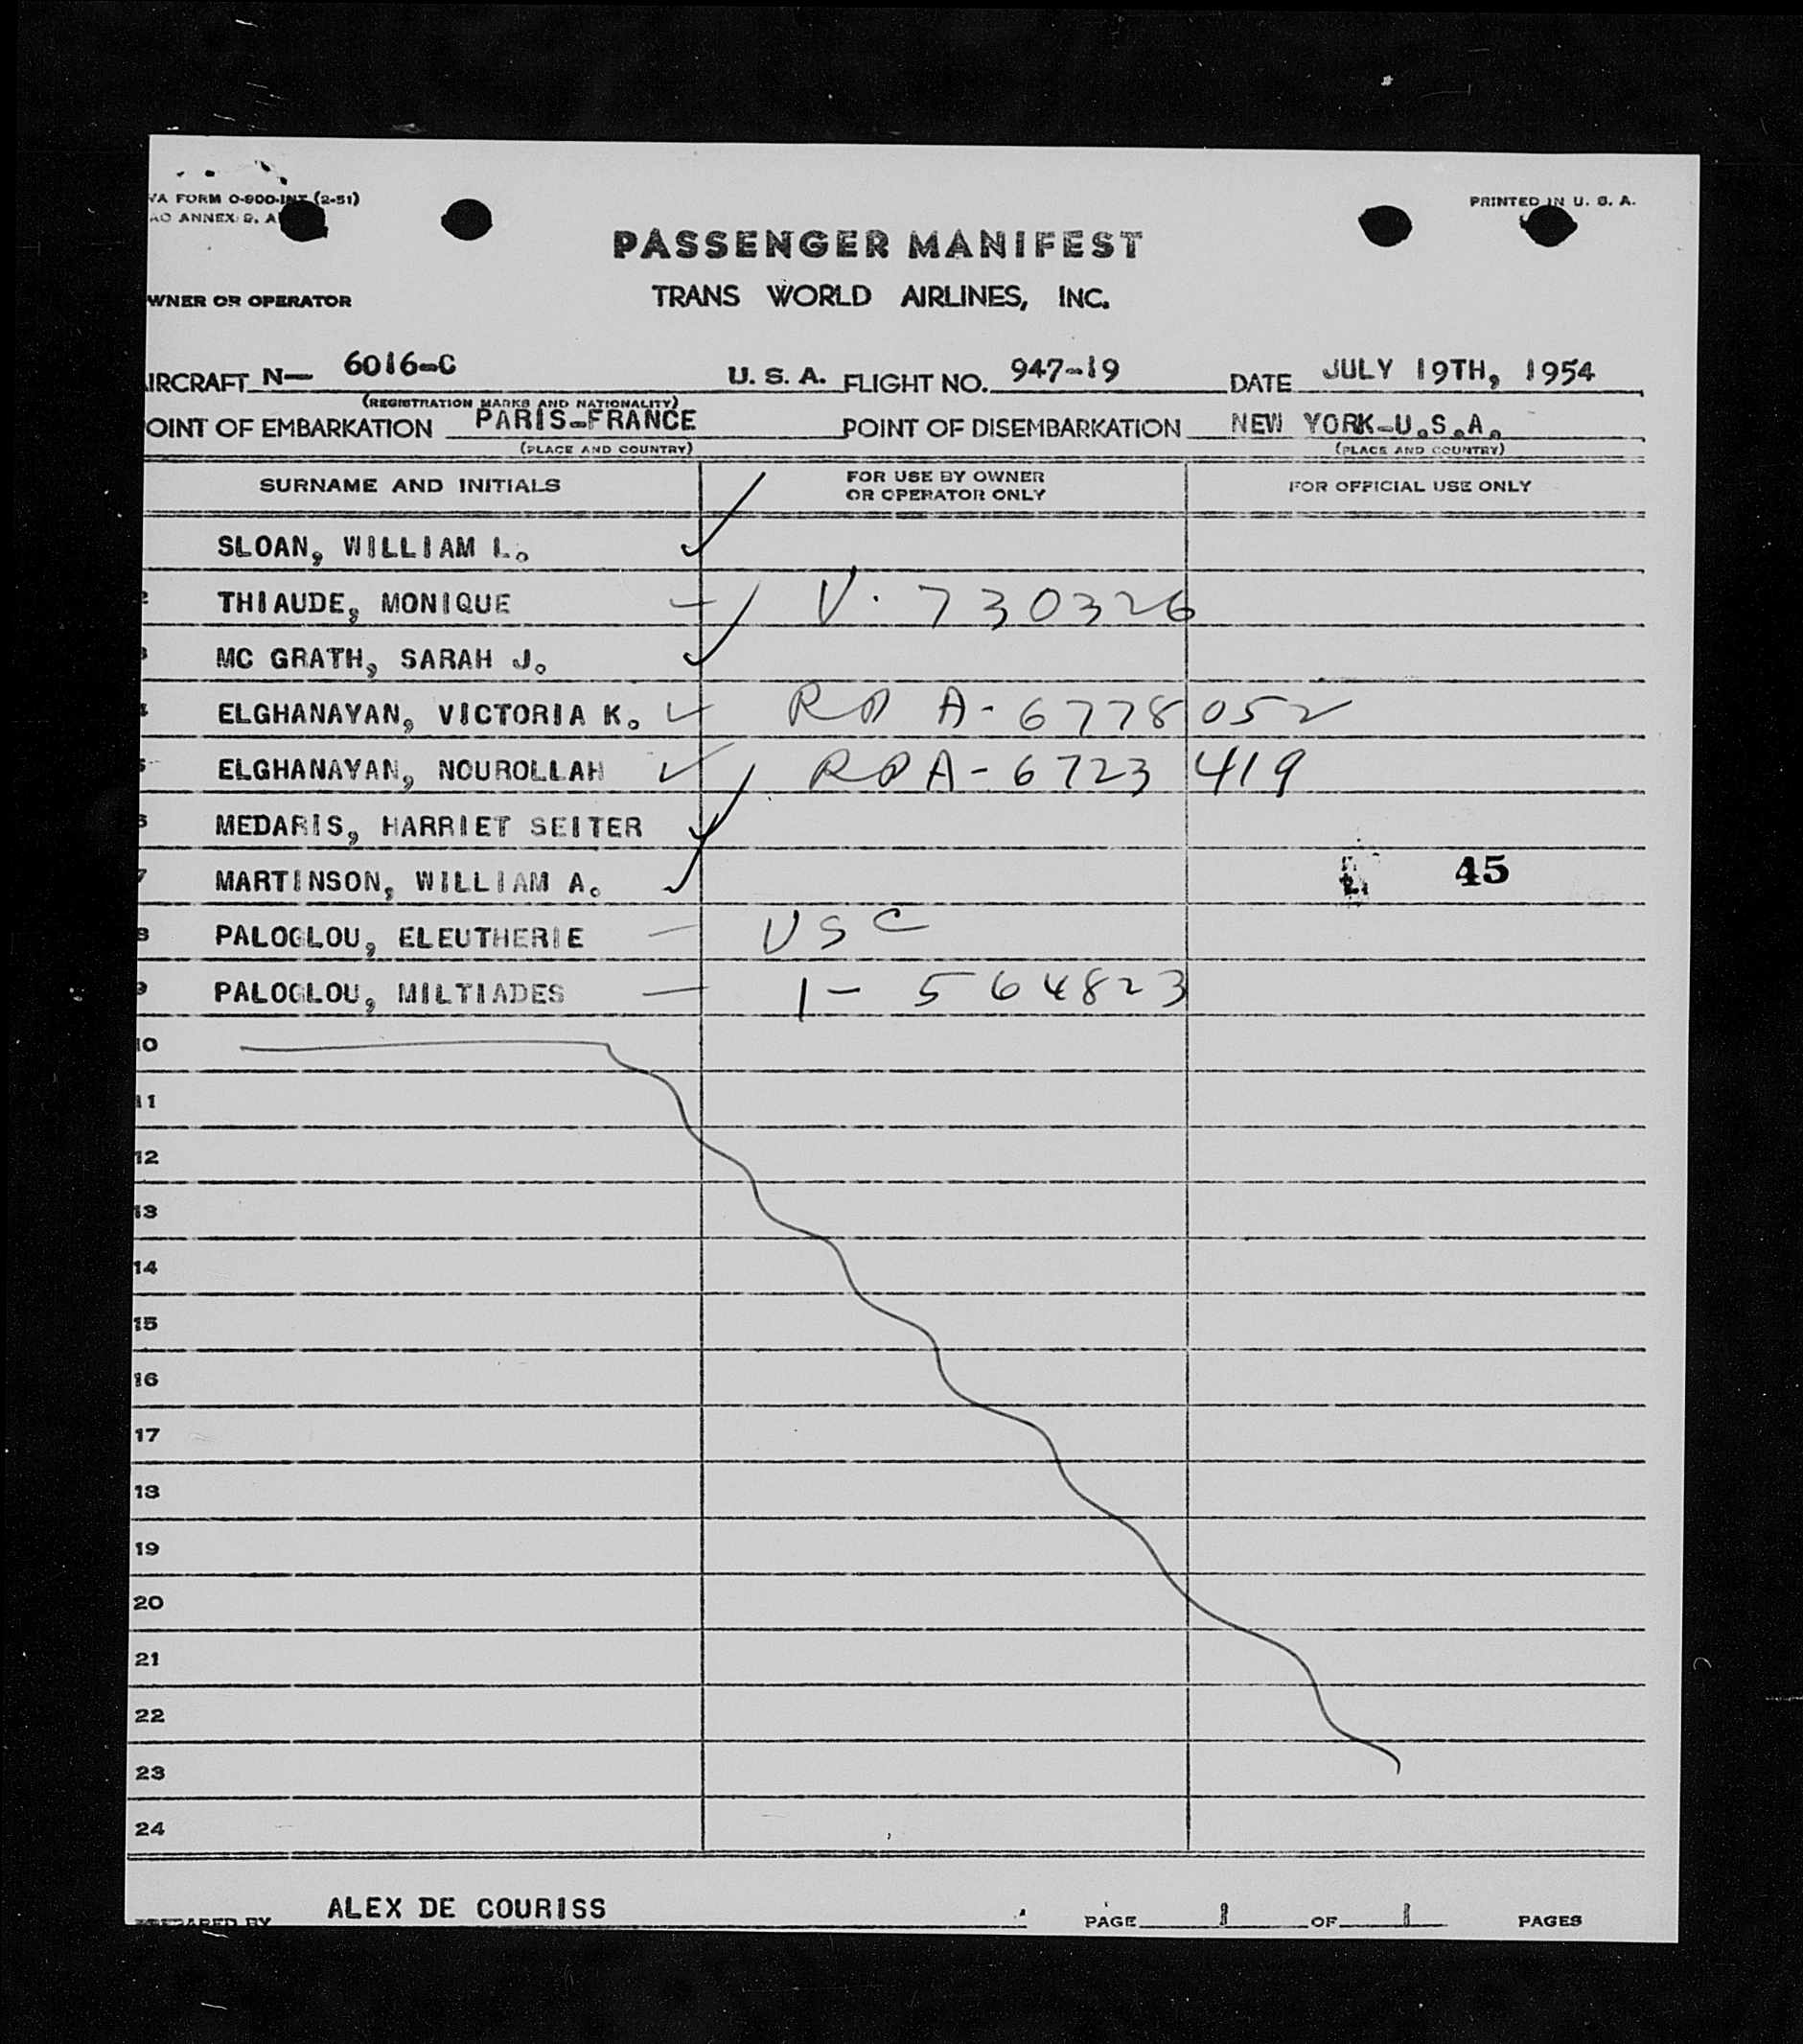 VA FORM 0-900-INT (2-51) PRINTED IN U. S. A.
AO ANNEX 9, A
PASSENGER MANIFEST
WNER OR OPERATOR TRANS WORLD AIRLINES, INC.
IRCRAFT N— 6016-C U. S. A. FLIGHT NO. 947-19 DATE JULY 19TH, 1954
(REGISTRATION MARKS AND NATIONALITY)
OINT OF EMBARKATION PARIS-FRANCE POINT OF DISEMBARKATION NEW YORK-U.S.A.
(PLACE AND COUNTRY) (PLACE AND COUNTRY)
SURNAME AND INITIALS FOR USE BY OWNER OR OPERATOR ONLY FOR OFFICIAL USE ONLY
SLOAN, WILLIAM L.
2 THIAUDE, MONIQUE V. 730326
3 MC GRATH, SARAH J.
4 ELGHANAYAN, VICTORIA K. RP A-6778052
5 ELGHANAYAN, NOUROLLAH RP A-6723419
6 MEDARIS, HARRIET SEITER
7 MARTINSON, WILLIAM A. 45
8 PALOGLOU, ELEUTHERIE USC
9 PALOGLOU, MILTIADES I- 564823
10
11
12
13
14
15
16
17
18
19
20
21
22
23
24
PREPARED BY ALEX DE COURISS PAGE 1 OF 1 PAGES